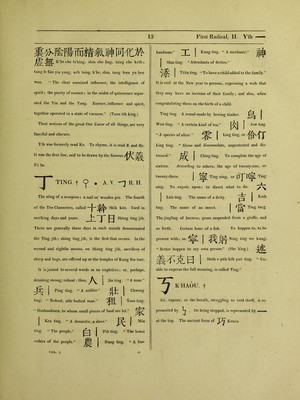 13
First Radical, II. Yih
"The clear unmixed influence; the intelligence of
spirit; the purity of essence; in the midst of quiescence sepa-
rated the Yin and the Yang. Essence, influence and spirit,
together operated in a state of vacuum."
Their notions of the great first Cause of all things, are very
fanciful and obscure.
Yih was formerly read Ko. To rhyme, it is read E and He.
It was the first line, said to be drawn by the famous 伏羲
Fŭ he.
丁 TING
A. V. R. H.
The sting of a scorpion; a nail or wooden pin. The fourth
of the Ten Characters, called 十幹 Shĭh kán. Used in
reckoning days and years. 上丁日 Shàng ting jih.
There are generally three days in each month denominated
the Ting jih; shàng ting jih, is the first that occurs. In the
second and eighth moons, on Shàng ting jih, sacrifices of
sheep and hogs, are offered up at the temples of Kung foo tsze.
It is joined to several words as an expletive; or, perhaps,
denoting strong; robust: thus, 人 Jin ting. "A man."
兵 Ping ting. "A soldier." 壯
ting. "Robust, able bodied man." 祖
"Husbandmen, to whom small pieces of land are let." 家
Kea ting. "A domestic; a slave." 民 Min
ting. "The people." 白 Pĭh ting. "The lower
orders of the people." 農 Nung ting. "A hus-
VOL. I.
bandman." 工 Kung ting. "A mechanic." 神
Shin ting. "Attendants of deities."
添 Tëĕn ting. "To have a child added to the family."
It is said at the New year to persons, expressing a wish that
they may have an increase of their family; and also, when
congratulating them on the birth of a child.
Ting ting. A sound made by hewing timber. 烏
Woo ting. "A certain kind of tea." 肉
"A species of silver." 零
King ting. "Alone and disconsolate, unprotected and dis-
tressed." 成 Ching ting. To complete the age of
manhood. According to others, the age of twenty-one, or
twenty-three. 寧 Ting ning, or 叮嚀 Ting
ning. To enjoin upon; to direct what to do. 六
Lŭh ting. The name of a deity. 吉
ting. The name of an insect. Ting ting
The jingling of fastens; gems suspended from a girdle, and
so forth. Certain bone of a fish. To happen to, to be
present with, as: 寧我躬 Ning ting wo kung.
"Rather happen to my own person." (She king.) 述
義不克曰 "Un-
able to express the full meaning, is called Ting."
丂 K'HAÓU.
Air, vapour, or the breath, struggling to vent itself, is re-
presented by
Its being stopped, is represented by
at the top. The ancient form of 巧